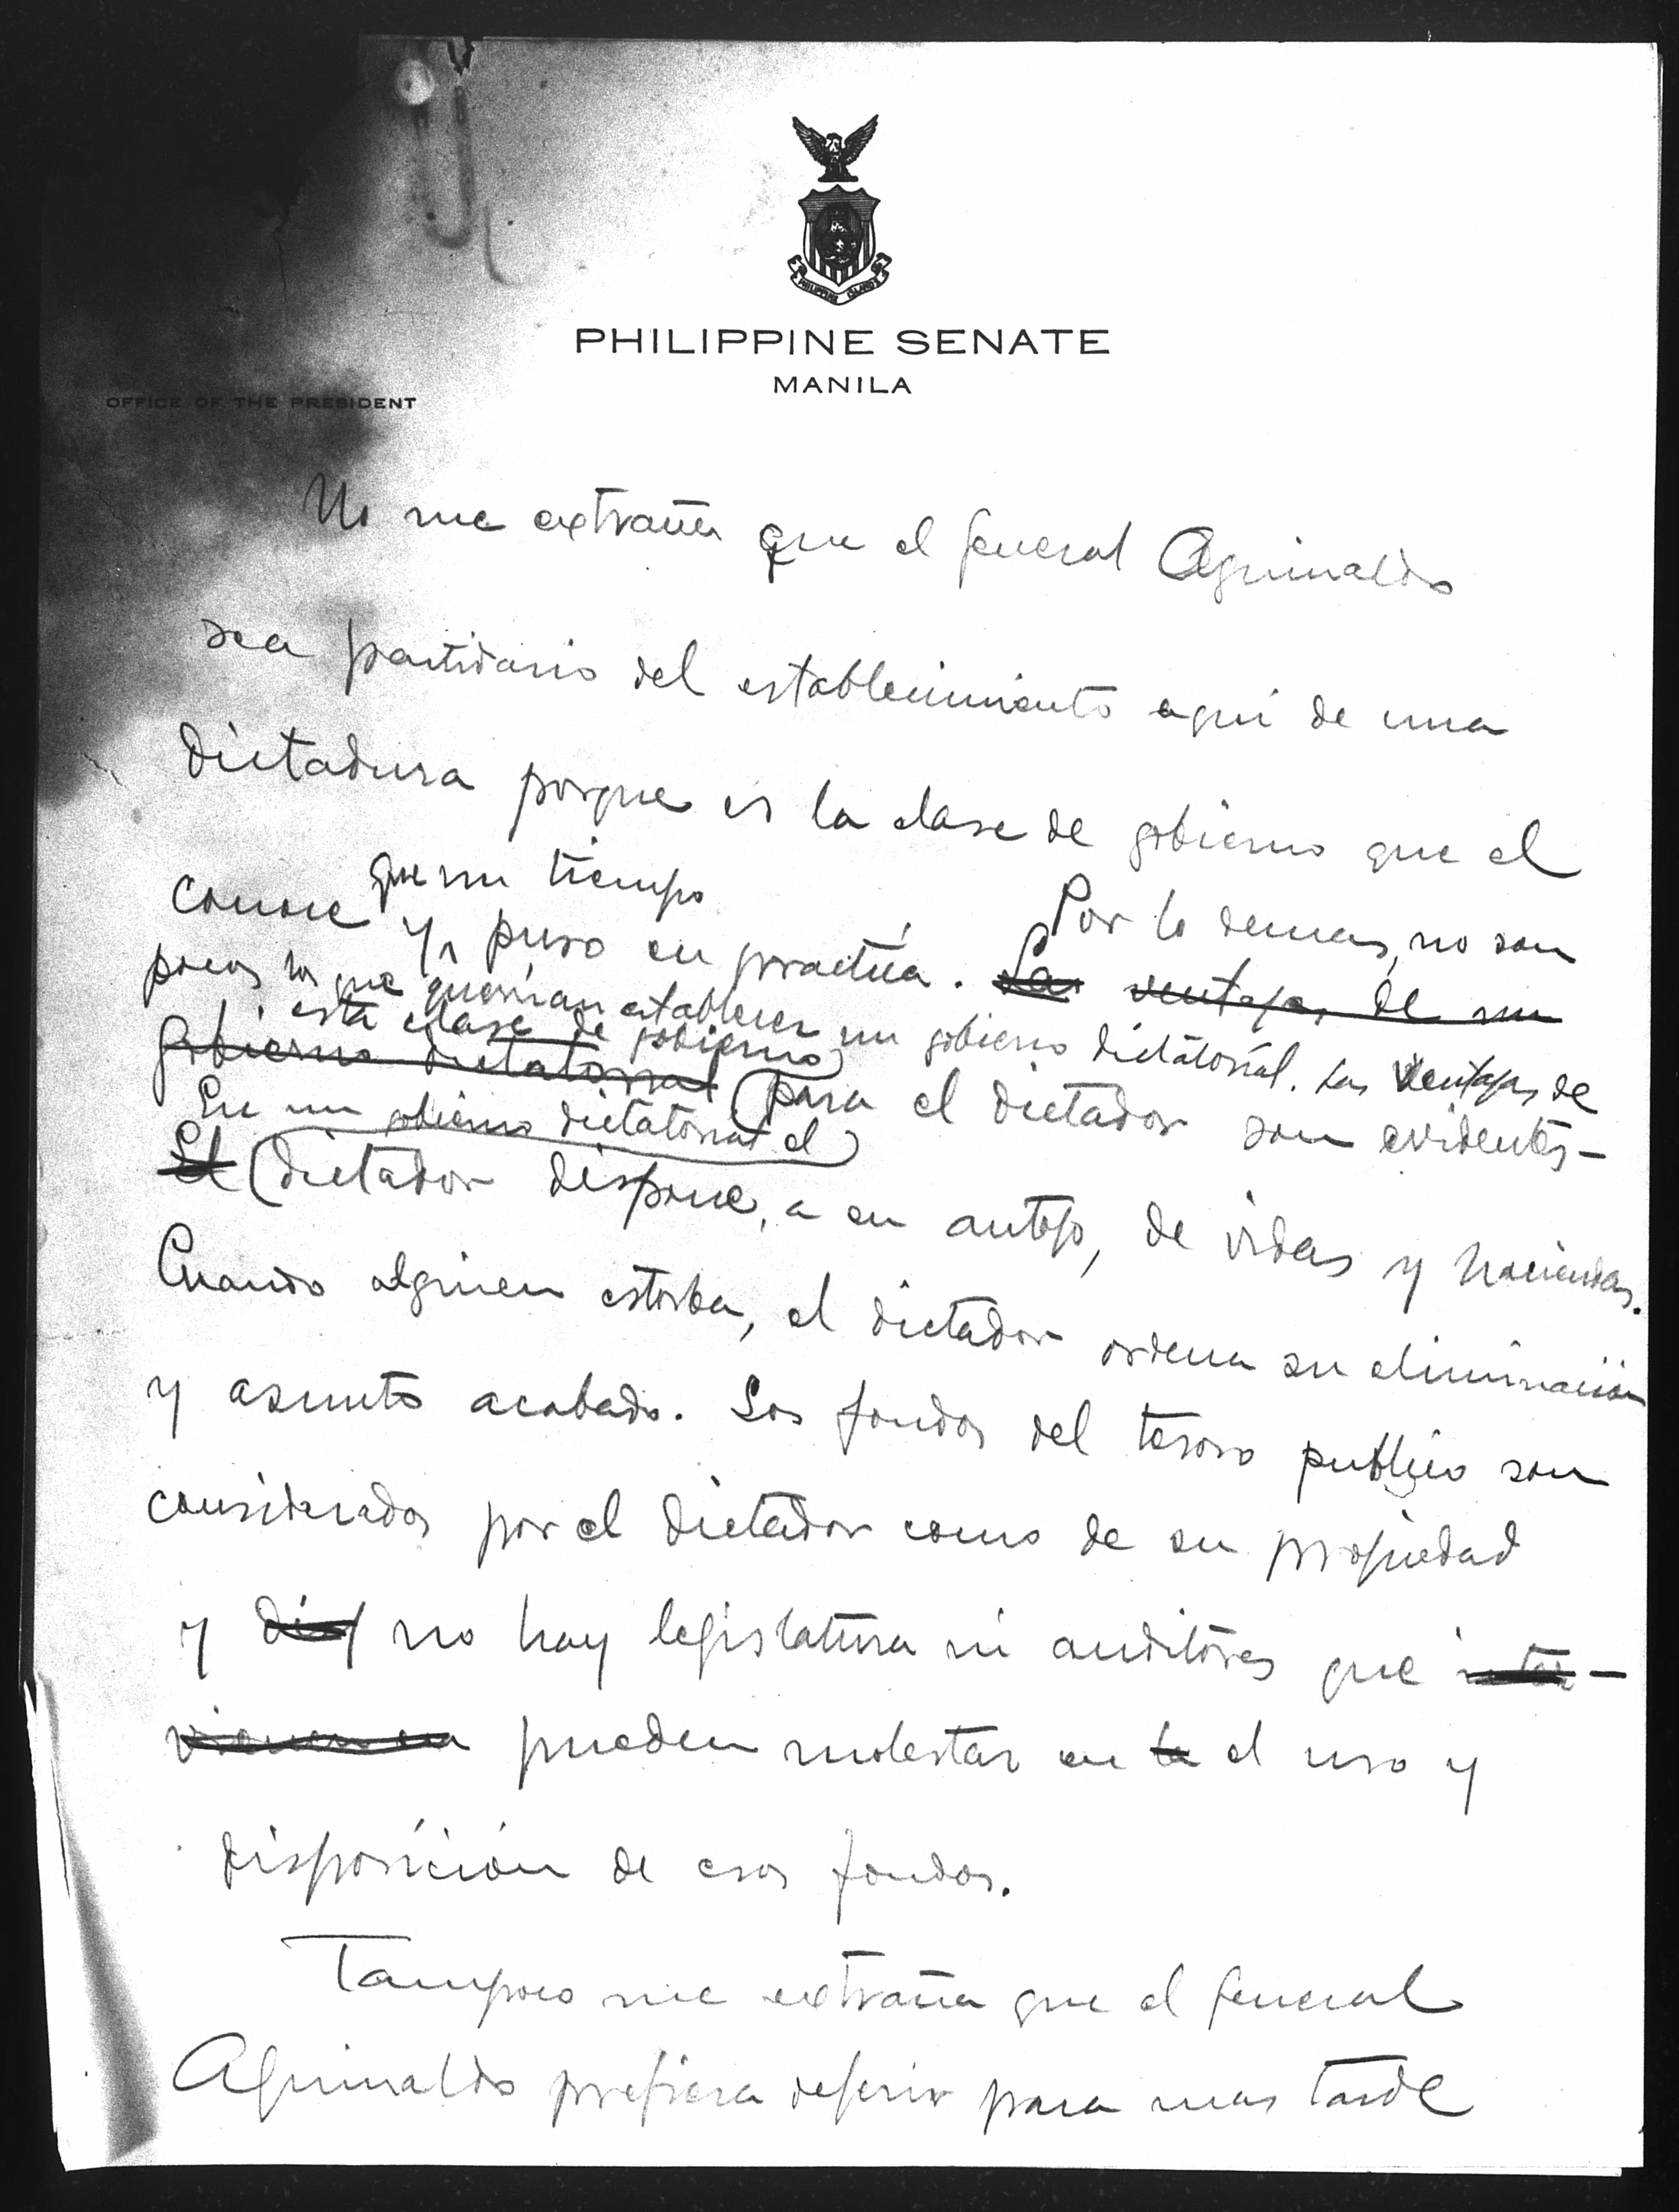 PHILIPPINE SENATE
MANILA
OFFICE OF THE PRESIDENT
No me extraña que el general Aguinaldo
sea partidario del establecimiento aqui de una
dictadura porque es la clase de gobierno que el
conoce que un tiempo
y puso en practica. Por lo demas, no son
La ventaja de un
pocos los que querrian establecer un gobierno dictatorial. Las ventajas de
esta clase de gobierno
gobierno dictatorial para el dictador son evidentes-
En un gobierno dictatorial el
El dictador dispone, a su antojo, de vidas y haciendas.
Cuando alguien estorba, el dictador ordena su eliminación
y asunto acabado. Los fondos del tesoro publico son
considerados por el dictador como de su propiedad
y dis no hay legislatura ni auditores que inter-
vienen en pueden molestar en la el uso y
disposición de esos fondos.
Tampoco me extraña que el general
Aguinaldo prefiera deferir para mas tarde